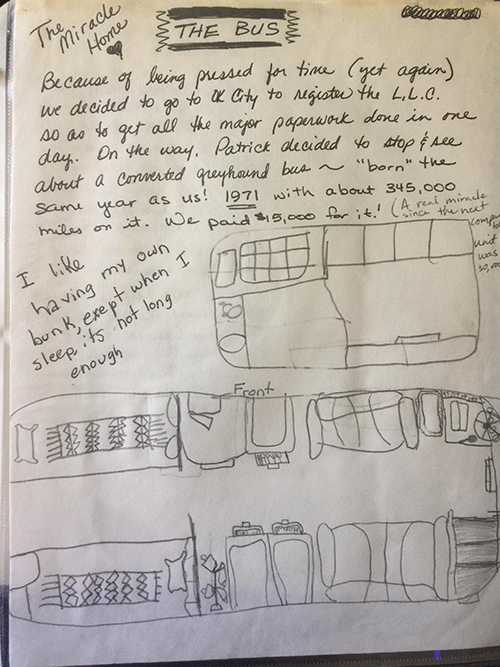 The
Miracle
Home
THE BUS
Because of being pressed for time (yet again)
we decided to go to OK City to register the L.L.C.
so as to get all the major paperwork done in one
day. On the way, Patrick decided to stop & see
about a converted greyhound bus ~ "born" the
same year as us! 1971 with about 345,000
miles on it. We paid $15,000 for it! (A real miracle
since the next
unit
was
I like
having my own
bunk, exept when I
sleep its not long
enough
Front